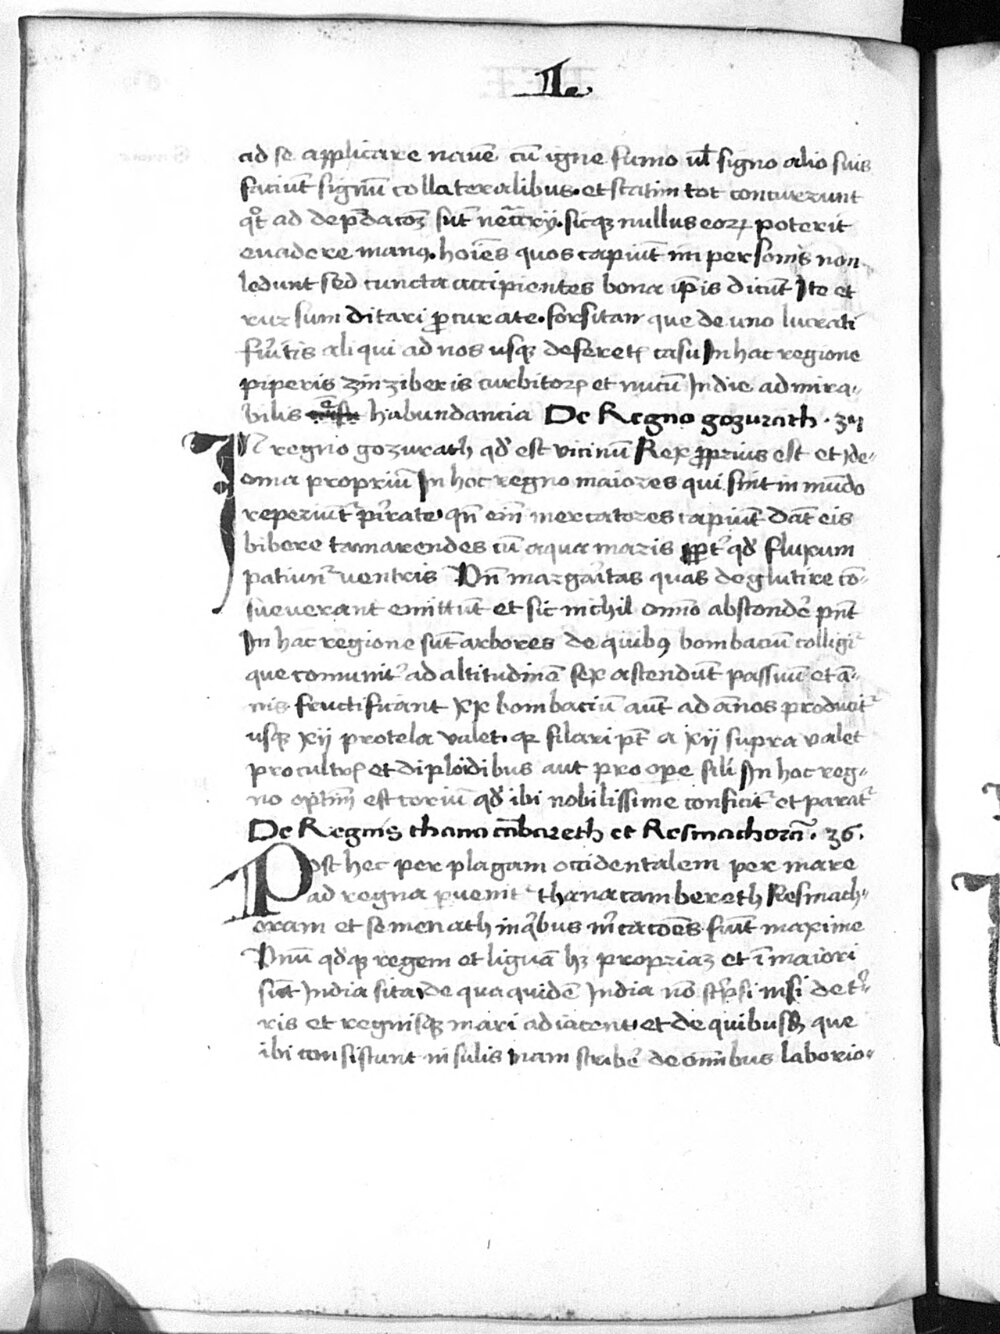 II.
ad se applicare nauē cū igne fumo ul̄ signo alio suis
faciūt signū collateralibus. et statim tot concurrunt
qt̊ ad dep̄datoꝫ sūt necc̄rij. sicqꝫ nullus eoꝝ poterit
euadere manꝰ. hoīes quos capiūt in personis non
ledunt sed cuncta accipientes bona ip̄is dicūt Ite et
rursum ditari ꝓcurate. forsitan que de uno lucrati
fūtis aliqui ad nos usqꝫ deferetꝭ casu In hac regione
piperis zinziberis turbitoꝝ et nucū Indie admira-
bilis habundancia De Regno gozurath. 35
IN regno gozurath qd̓ est vicinū Rex ꝓprius est et Ide-
oma propriū In hoc regno maiores qui sint in mūdo
reperiūt᷑ pirate. qn̄ eī mercatores capiūt dāt eis
bibere tamarendes cū aqua maris ꝓpt᷑ qd̓ fluxum
patiunt᷑ ventris Vn̄ margaritas quas deglutire cō-
sueverant emittūt et sic nichil om̄o abscondē pn̄t
In hac regione sūt arbores de quibꝰ bombaciū colligit᷑
que comunit᷑ ad altitudinē sex ascendūt passuū et ā-
nis fructificant xx bombaciū aūt ad ānos producit᷑
usqꝫ xij pro tela valet. qꝛ filari pt̄ a xij supra valet
pro cultrꝭ et diploidibus aut pro opere fili In hoc reg-
no optimū est coriū qd̓ ibi nobilissime conficit᷑ et parat᷑
De Regnis thana cābareth et Resmachorā. 36.
Post hec per plagam occidentalem per mare
ad regna ꝑuenit᷑ thana cambereth Resmach-
oram et semenath in qͥbus m̄cacōēs fiūt maxime
Vnū qd̓qꝫ regem et liguā hꝫ propriaꝫ et ī maiori
sūt India sita, de qua quidē India nō scͥpsi nisi de t᷑-
ris et regnisqꝫ mari adiacent. et de quibusdā que
ibi consistunt insulis nam scribē de omībus laborio-